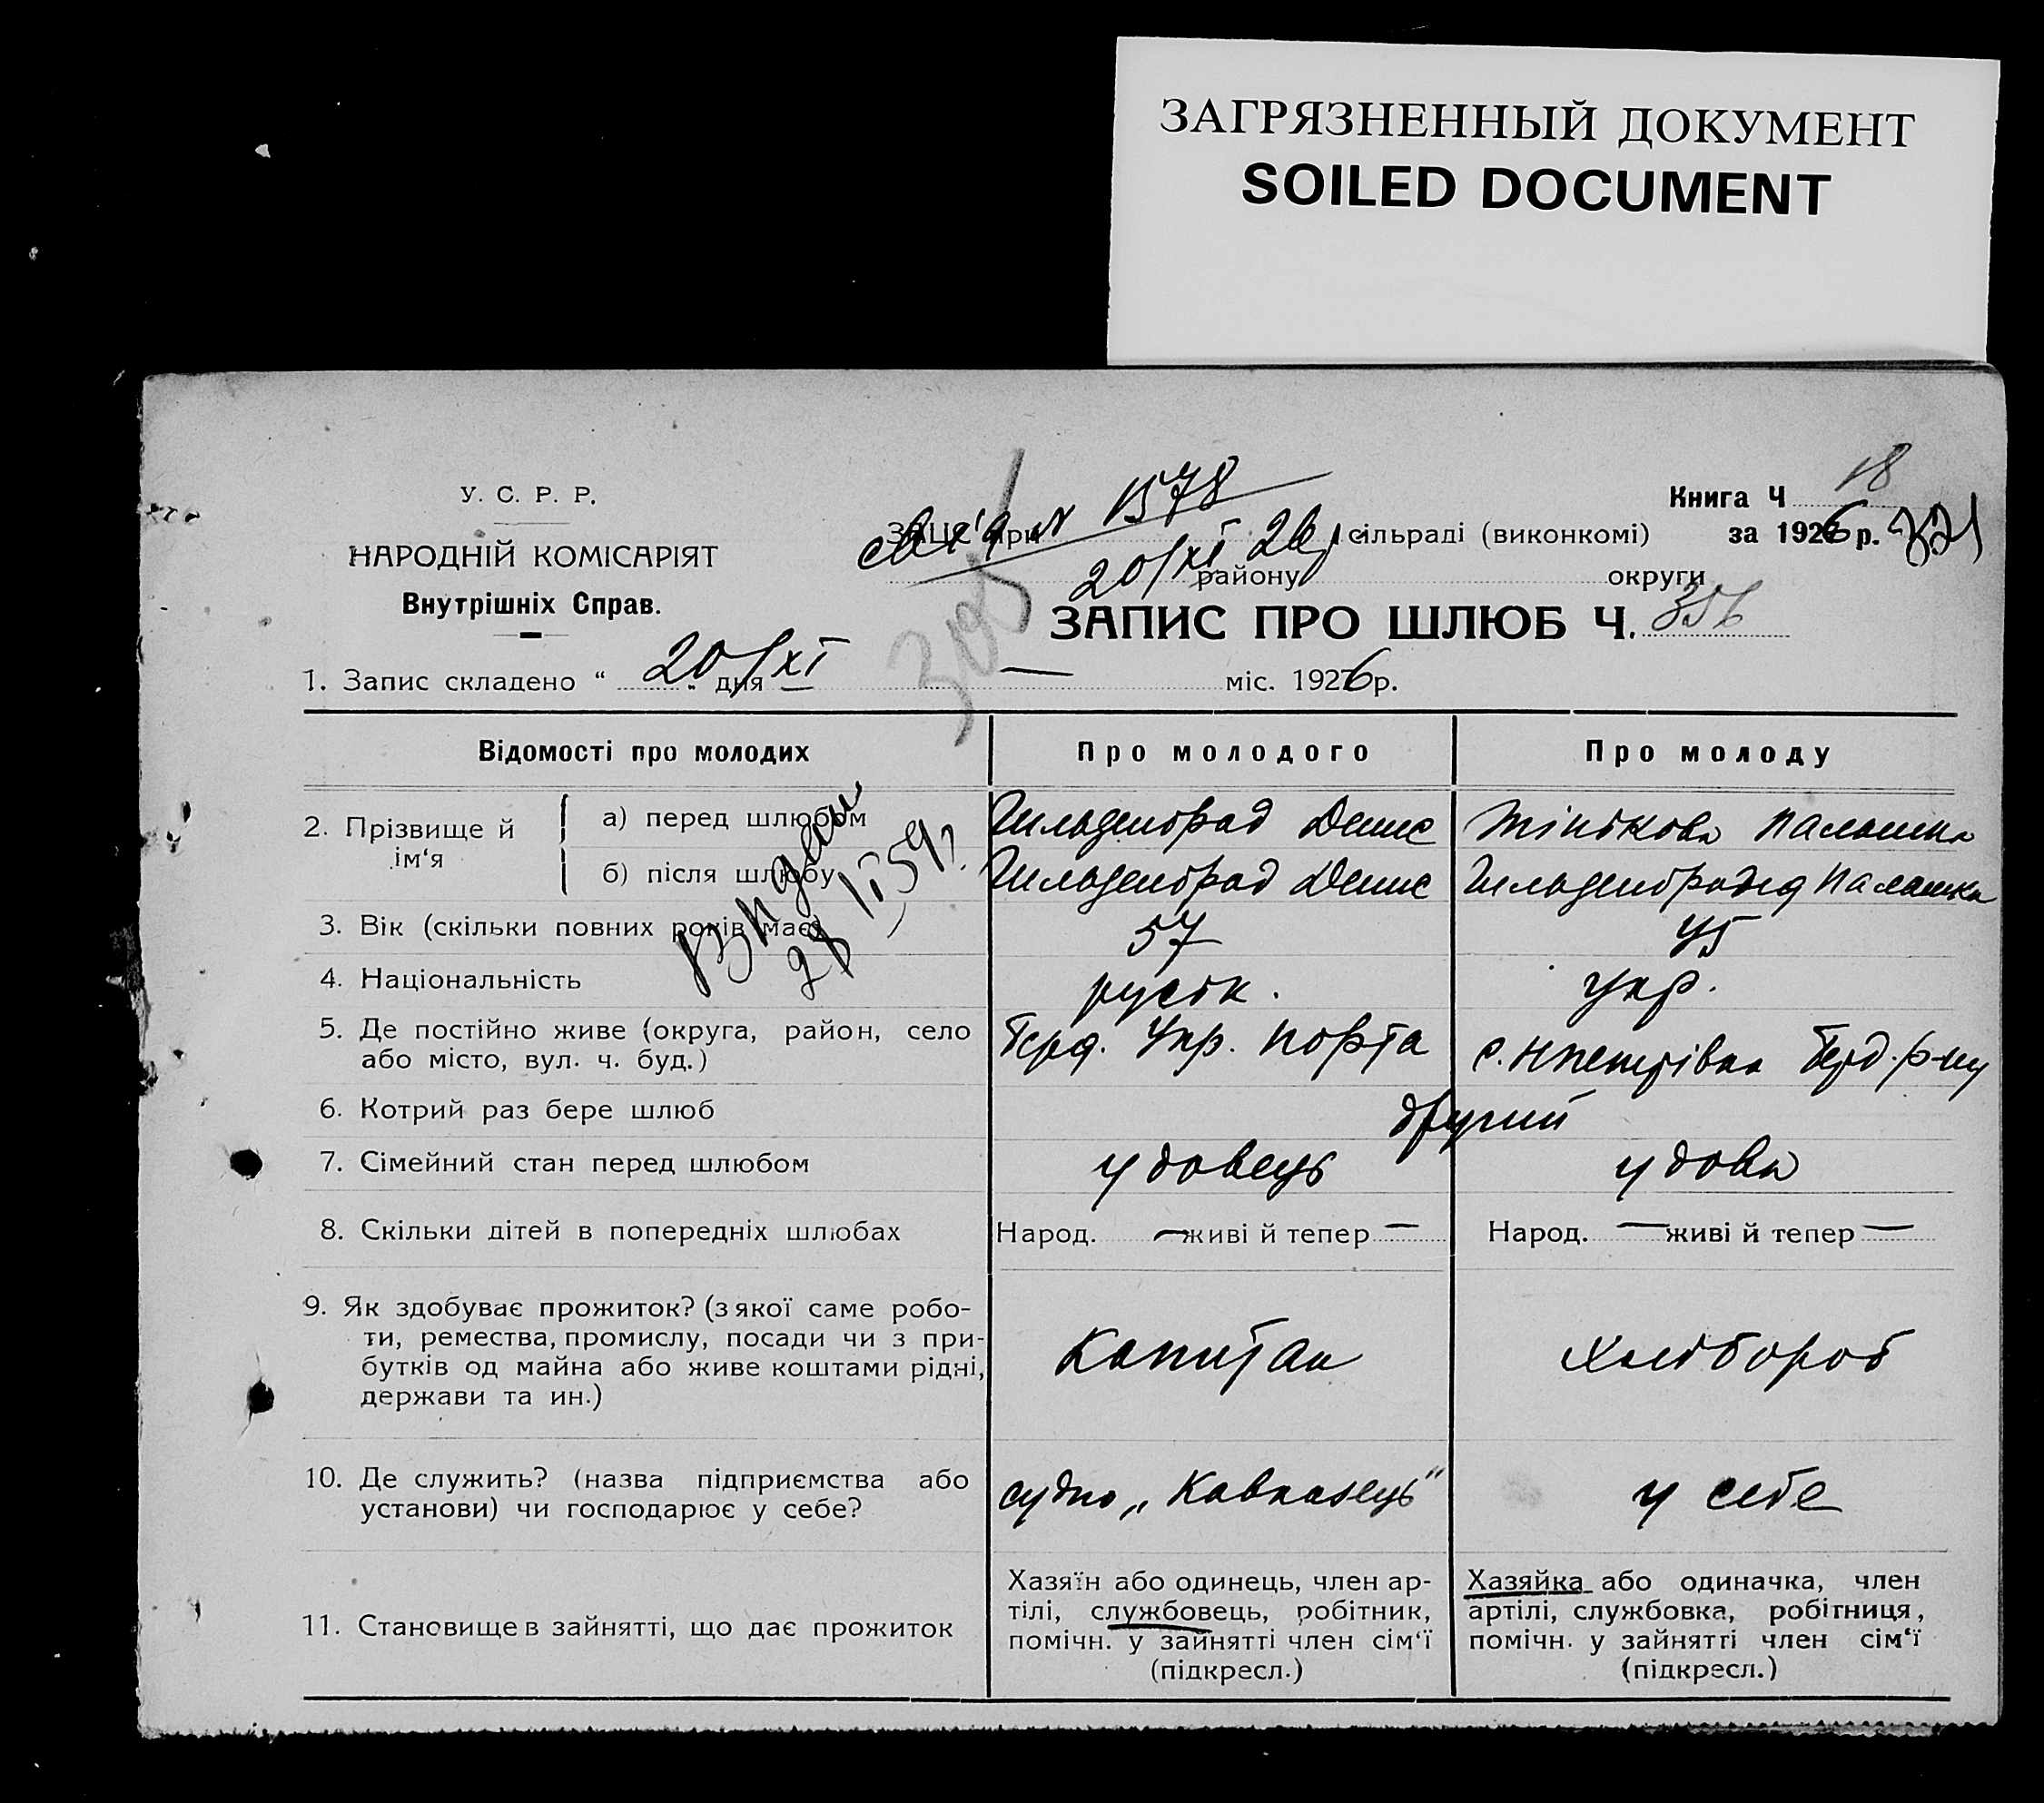 ЗАГРЯЗНЕННЫЙ ДОКУМЕНТ
SOILED DOCUMENT
У. С. Р. Р.
НАРОДНІЙ КОМІСАРІЯТ
Внутрішніх Справ.
1578
20/XI 26
сільраді (виконкомі)
району округи
Книга Ч 18
за 1926 р. 321
ЗАПИС ПРО ШЛЮБ Ч. 356
305
1. Запис складено “ 20/XI „ дня — міс. 1926 р.
Відомості про молодих Про молодого Про молоду
2. Прізвище й ім‘я
а) перед шлюбом Гильденбрад Денис Жінткова Палашка
б) після шлюбу Гильденбрад Денис Гильденбрадід Палашка
3. Вік (скільки повних років має) 57 45
28 II 59 р.
4. Національність руськ. укр.
5. Де постійно живе (округа, район, село Берд. Упр. Порта с. Нпетрівка Берд. р-ну
або місто, вул. ч. буд.)
6. Котрий раз бере шлюб другий
7. Сімейний стан перед шлюбом удовець удова
8. Скільки дітей в попередніх шлюбах Народ. — живі й тепер — Народ. — живі й тепер —
9. Як здобуває прожиток? (з якої саме робо-
ти, ремества, промислу, посади чи з при-
бутків од майна або живе коштами рідні, Капитан Хлібороб
держави та ин.)
10. Де служить? (назва підприємства або
установи) чи господарює у себе? судно „Кавказець“ у себе
11. Становище в зайнятті, що дає прожиток
Хазяїн або одинець, член ар-
тілі, службовець, робітник,
помічн. у зайнятті член сім‘ї
(підкресл.)
Хазяйка або одиначка, член
артілі, службовка, робітниця,
помічн. у зайнятті член сім‘ї
(підкресл.)